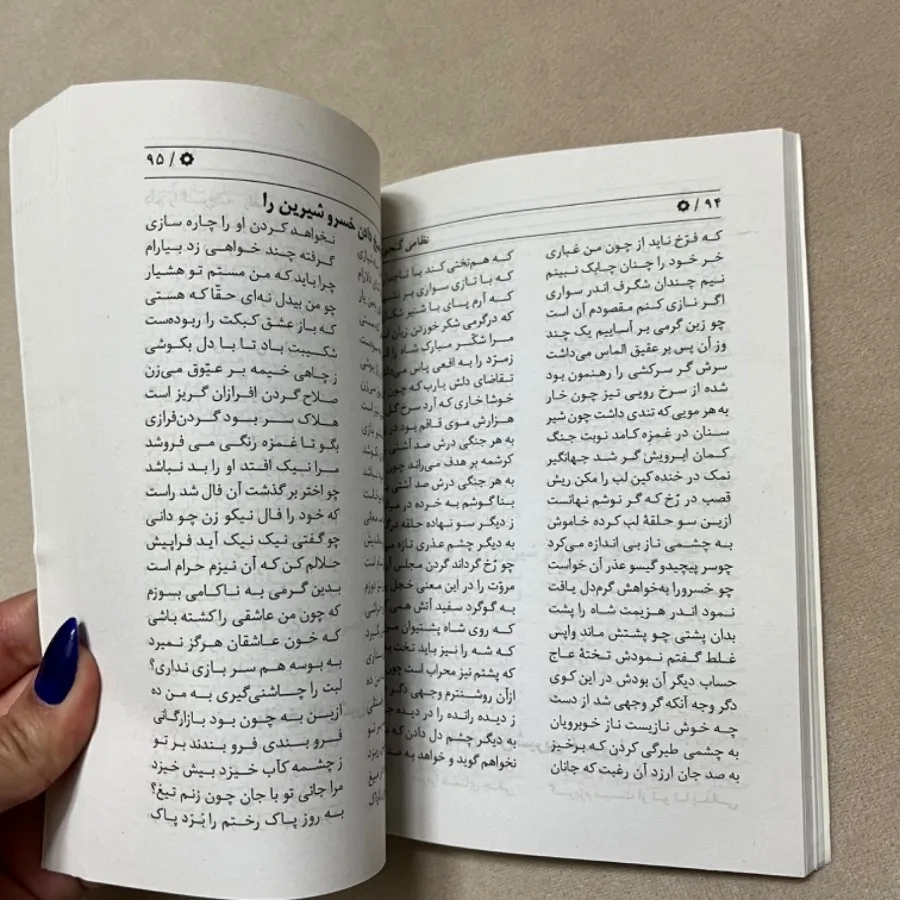 ۹۴ /
نظامی
که فرّخ ناید از چون من غباری که هم‌تختی کند با
خر خود را چنان چابک نبینم که با تازی سواری بر
نیم چندان شگرف اندر سواری که آرم پای با شیر
اگر نازی کنم مقصودم آن است که درگرمی شکر خوردن زیان
چو زین گرمی بر آساییم یک چند مرا شکّر مبارک شاه را
وز آن پس بر عقیق الماس می‌داشت زمرّد را به افعی پاس می‌داشت
سرش گر سرکشی را رهنمون بود تقاضای دلش یارب که چون
شده از سرخ رویی تیز چون خار خوشا خاری که آرد سرخ
به هر مویی که تندی داشت چون شیر هزارش موی قاقم بود در
سنان در غمزه کامد نوبت جنگ به هر جنگی درش صد آشتی
کمان ابرویش گر شد جهانگیر کرشمه بر هدف می‌راند چون
نمک در خنده کین لب را مکن ریش به هر جنگی درش صد آشتی
قصب در رُخ که گر نوشم نهانست بنا گوشم به خرده در
ازین سو حلقهٔ لب کرده خاموش ز دیگر سو نهاده حلقه
به چشمی ناز بی اندازه می‌کرد به دیگر چشم عذری تازه
چوسر پیچیدو گیسو عذر آن خواست چو رُخ گرداند گردن مجلس
چو خسرورا به‌خواهش گرم‌دل یافت مروّت را در این معنی خجل
نمود اندر هزیمت شاه را پشت به گوگرد سفید آتش همی
بدان پشتی چو پشتش ماند واپس که روی شاه پشتیوان
غلط گفتم نمودش تختهٔ عاج که شه را نیز باید تخت
حساب دیگر آن بودش در این کوی که پشتم نیز محراب است
دگر وجه آنکه گر وجهی شد از دست ازآن روشنترم وجهی دگر
چه خوش نازیست ناز خوبرویان ز دیده رانده را در دیده
به چشمی طیرگی کردن که برخیز به دیگر چشم دل دادن که
به صد جان ارزد آن رغبت که جانان نخواهم گوید و خواهد به صد
۹۵ /
دادن خسرو شیرین را
نخواهد کردن او را چاره سازی
گرفته چند خواهی زد بیارام
چرا باید که من مستم تو هشیار
چو من بیدل نه‌ای حقّا که هستی
که باز عشق کبکت را ربوده‌ست
شکیبت باد تا با دل بکوشی
ز چاهی خیمه بر عیّوق می‌زن
صلاح گردن افرازان گریز است
هلاک سر بود گردن‌فرازی
بگو تا غمزه رنگی می فروشد
مرا نیک افتد او را بد نباشد
چو اختر بر گذشت آن فال شد راست
که خود را فال نیکو زن چو دانی
چو گفتی نیک نیک آید فراپیش
حلالم کن که آن نیزم حرام است
بدین گرمی به ناکامی بسوزم
که چون من عاشقی را کشته باشی
که خون عاشقان هرگز نمیرد
به بوسه هم سر بازی نداری؟
لبت را چاشنی‌گیری به من ده
ازین به چون بود بازارگانی
فرو بندی فرو بندند بر تو
ز چشمه کآب خیزد بیش خیزد
مرا جانی تو با جان چون زنم تیغ؟
به روز پاک رختم را بُرَد پاک